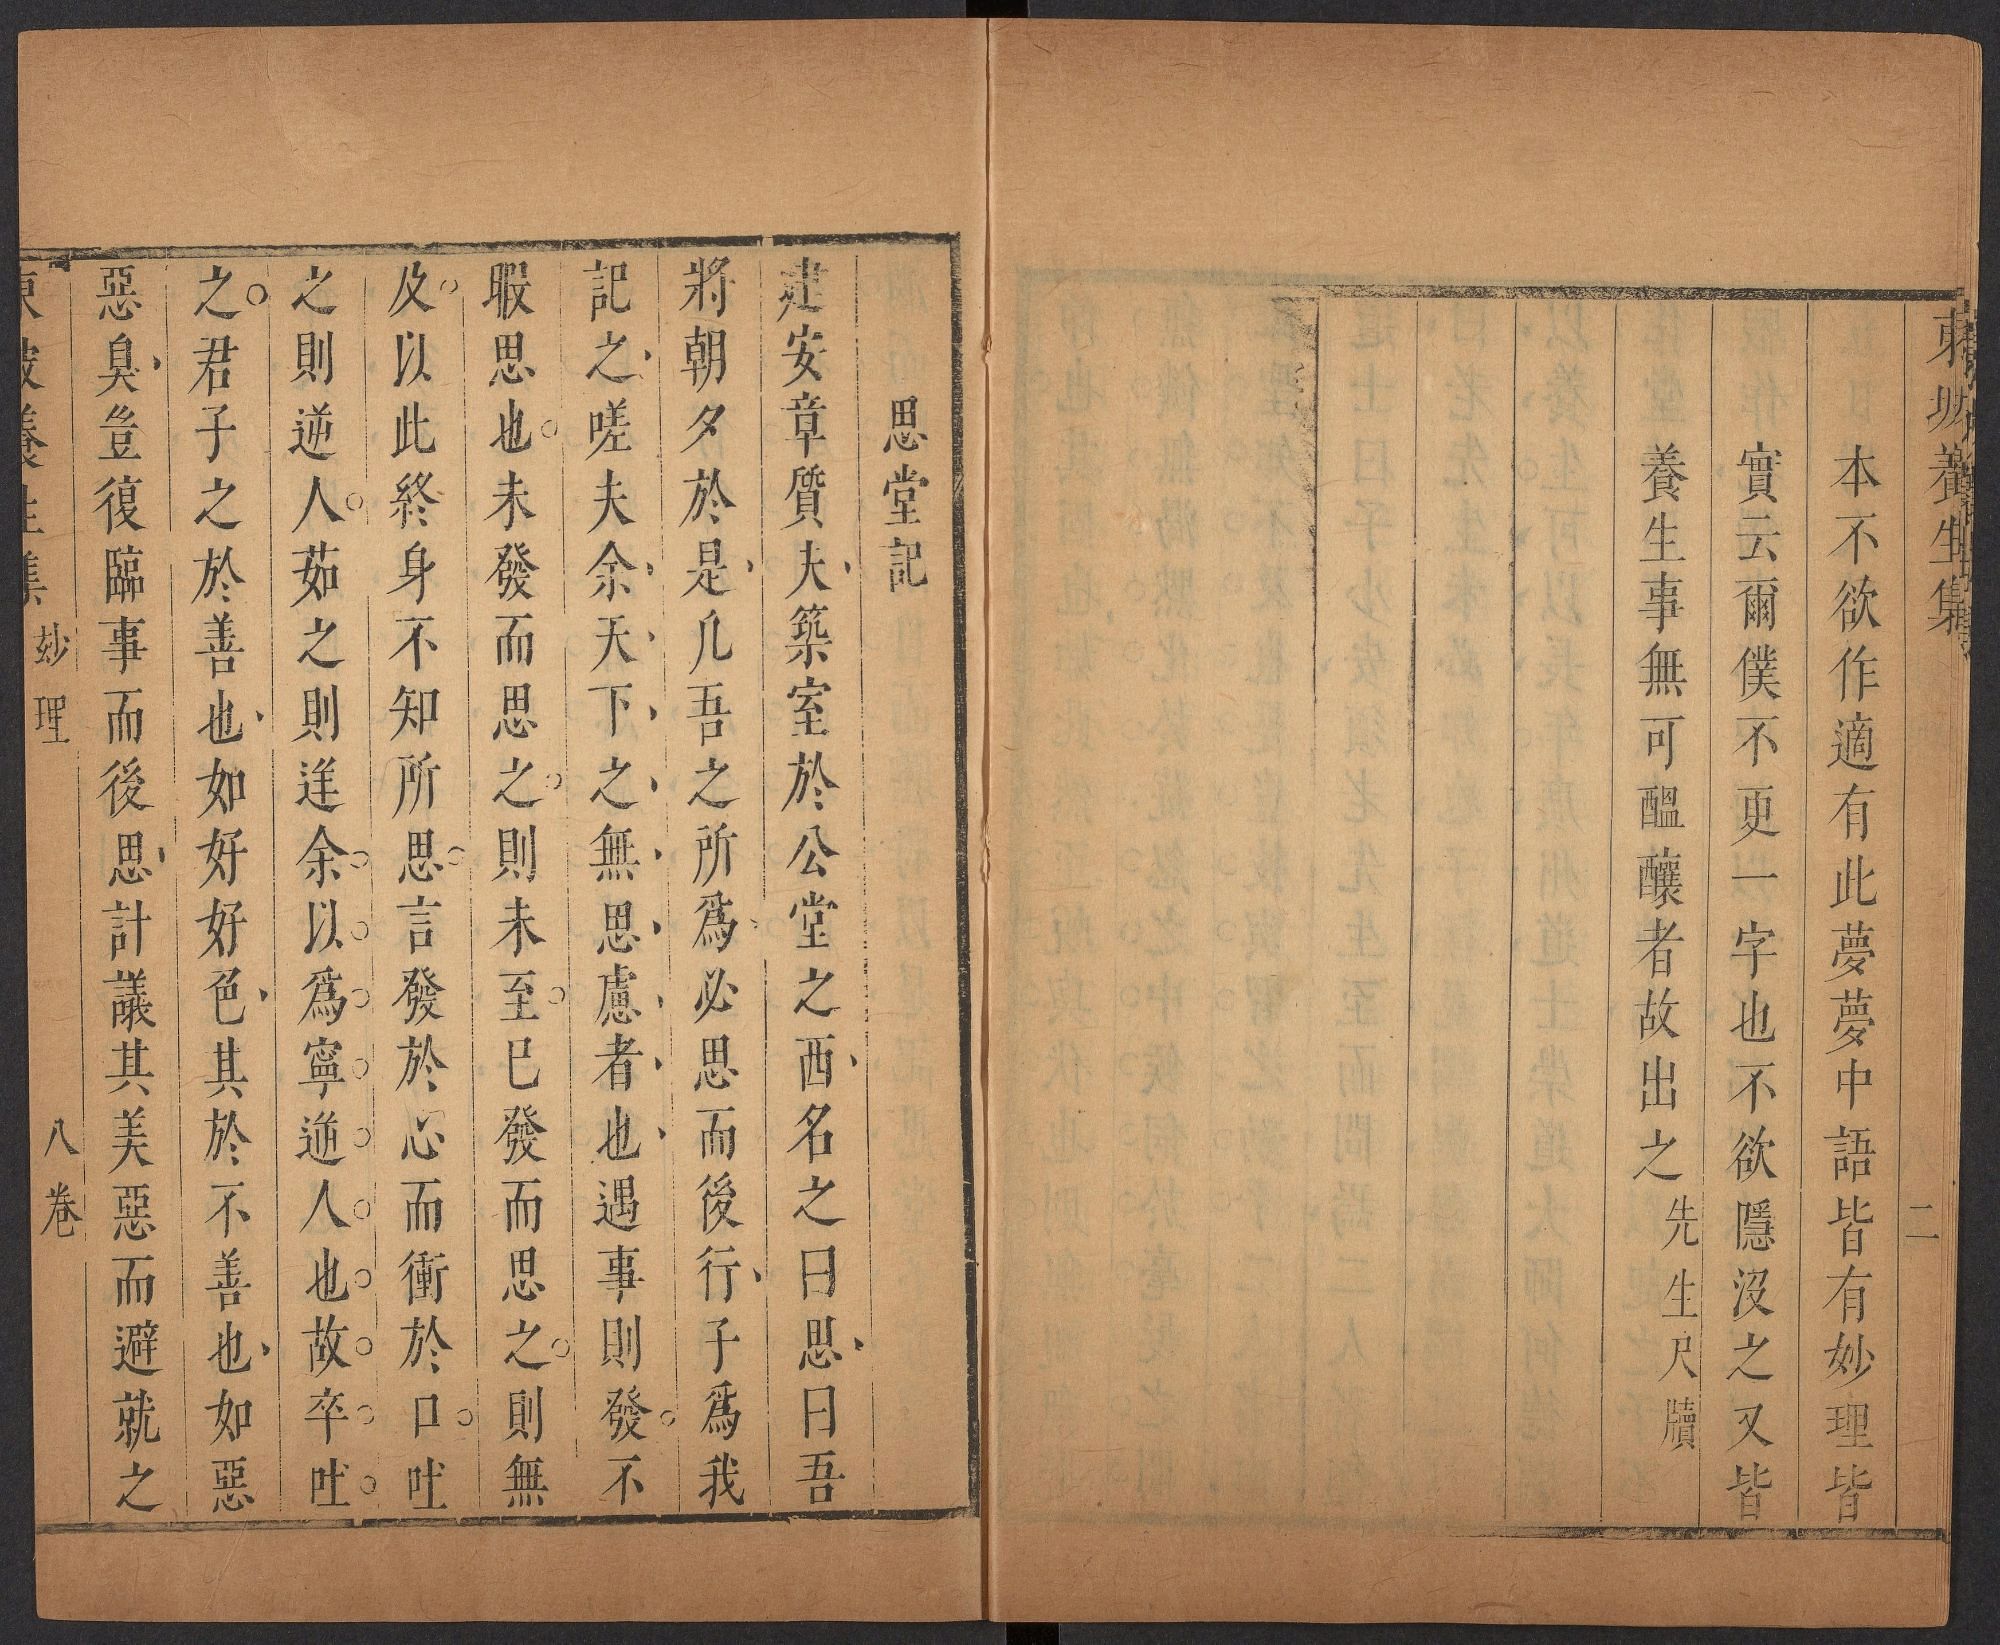 東坡養生集
二
本不欲作適有此夢夢中語皆有妙理皆
實云爾僕不更一字也不欲隱沒之又皆
養生事無可醞釀者故出之先生尺牘
思堂記
建安章質夫築室於公堂之西名之曰思曰吾
將朝夕於是凡吾之所爲必思而後行子爲我
記之嗟夫余天下之無思慮者也遇事則發不
暇思也未發而思之則未至已發而思之則無
及以此終身不知所思言發於心而衝於口吐
之則逆人茹之則逆余以爲寧逆人也故卒吐
之君子之於善也如好好色其於不善也如惡
惡臭豈復臨事而後思計議其美惡而避就之
東坡養生集 妙理 八卷